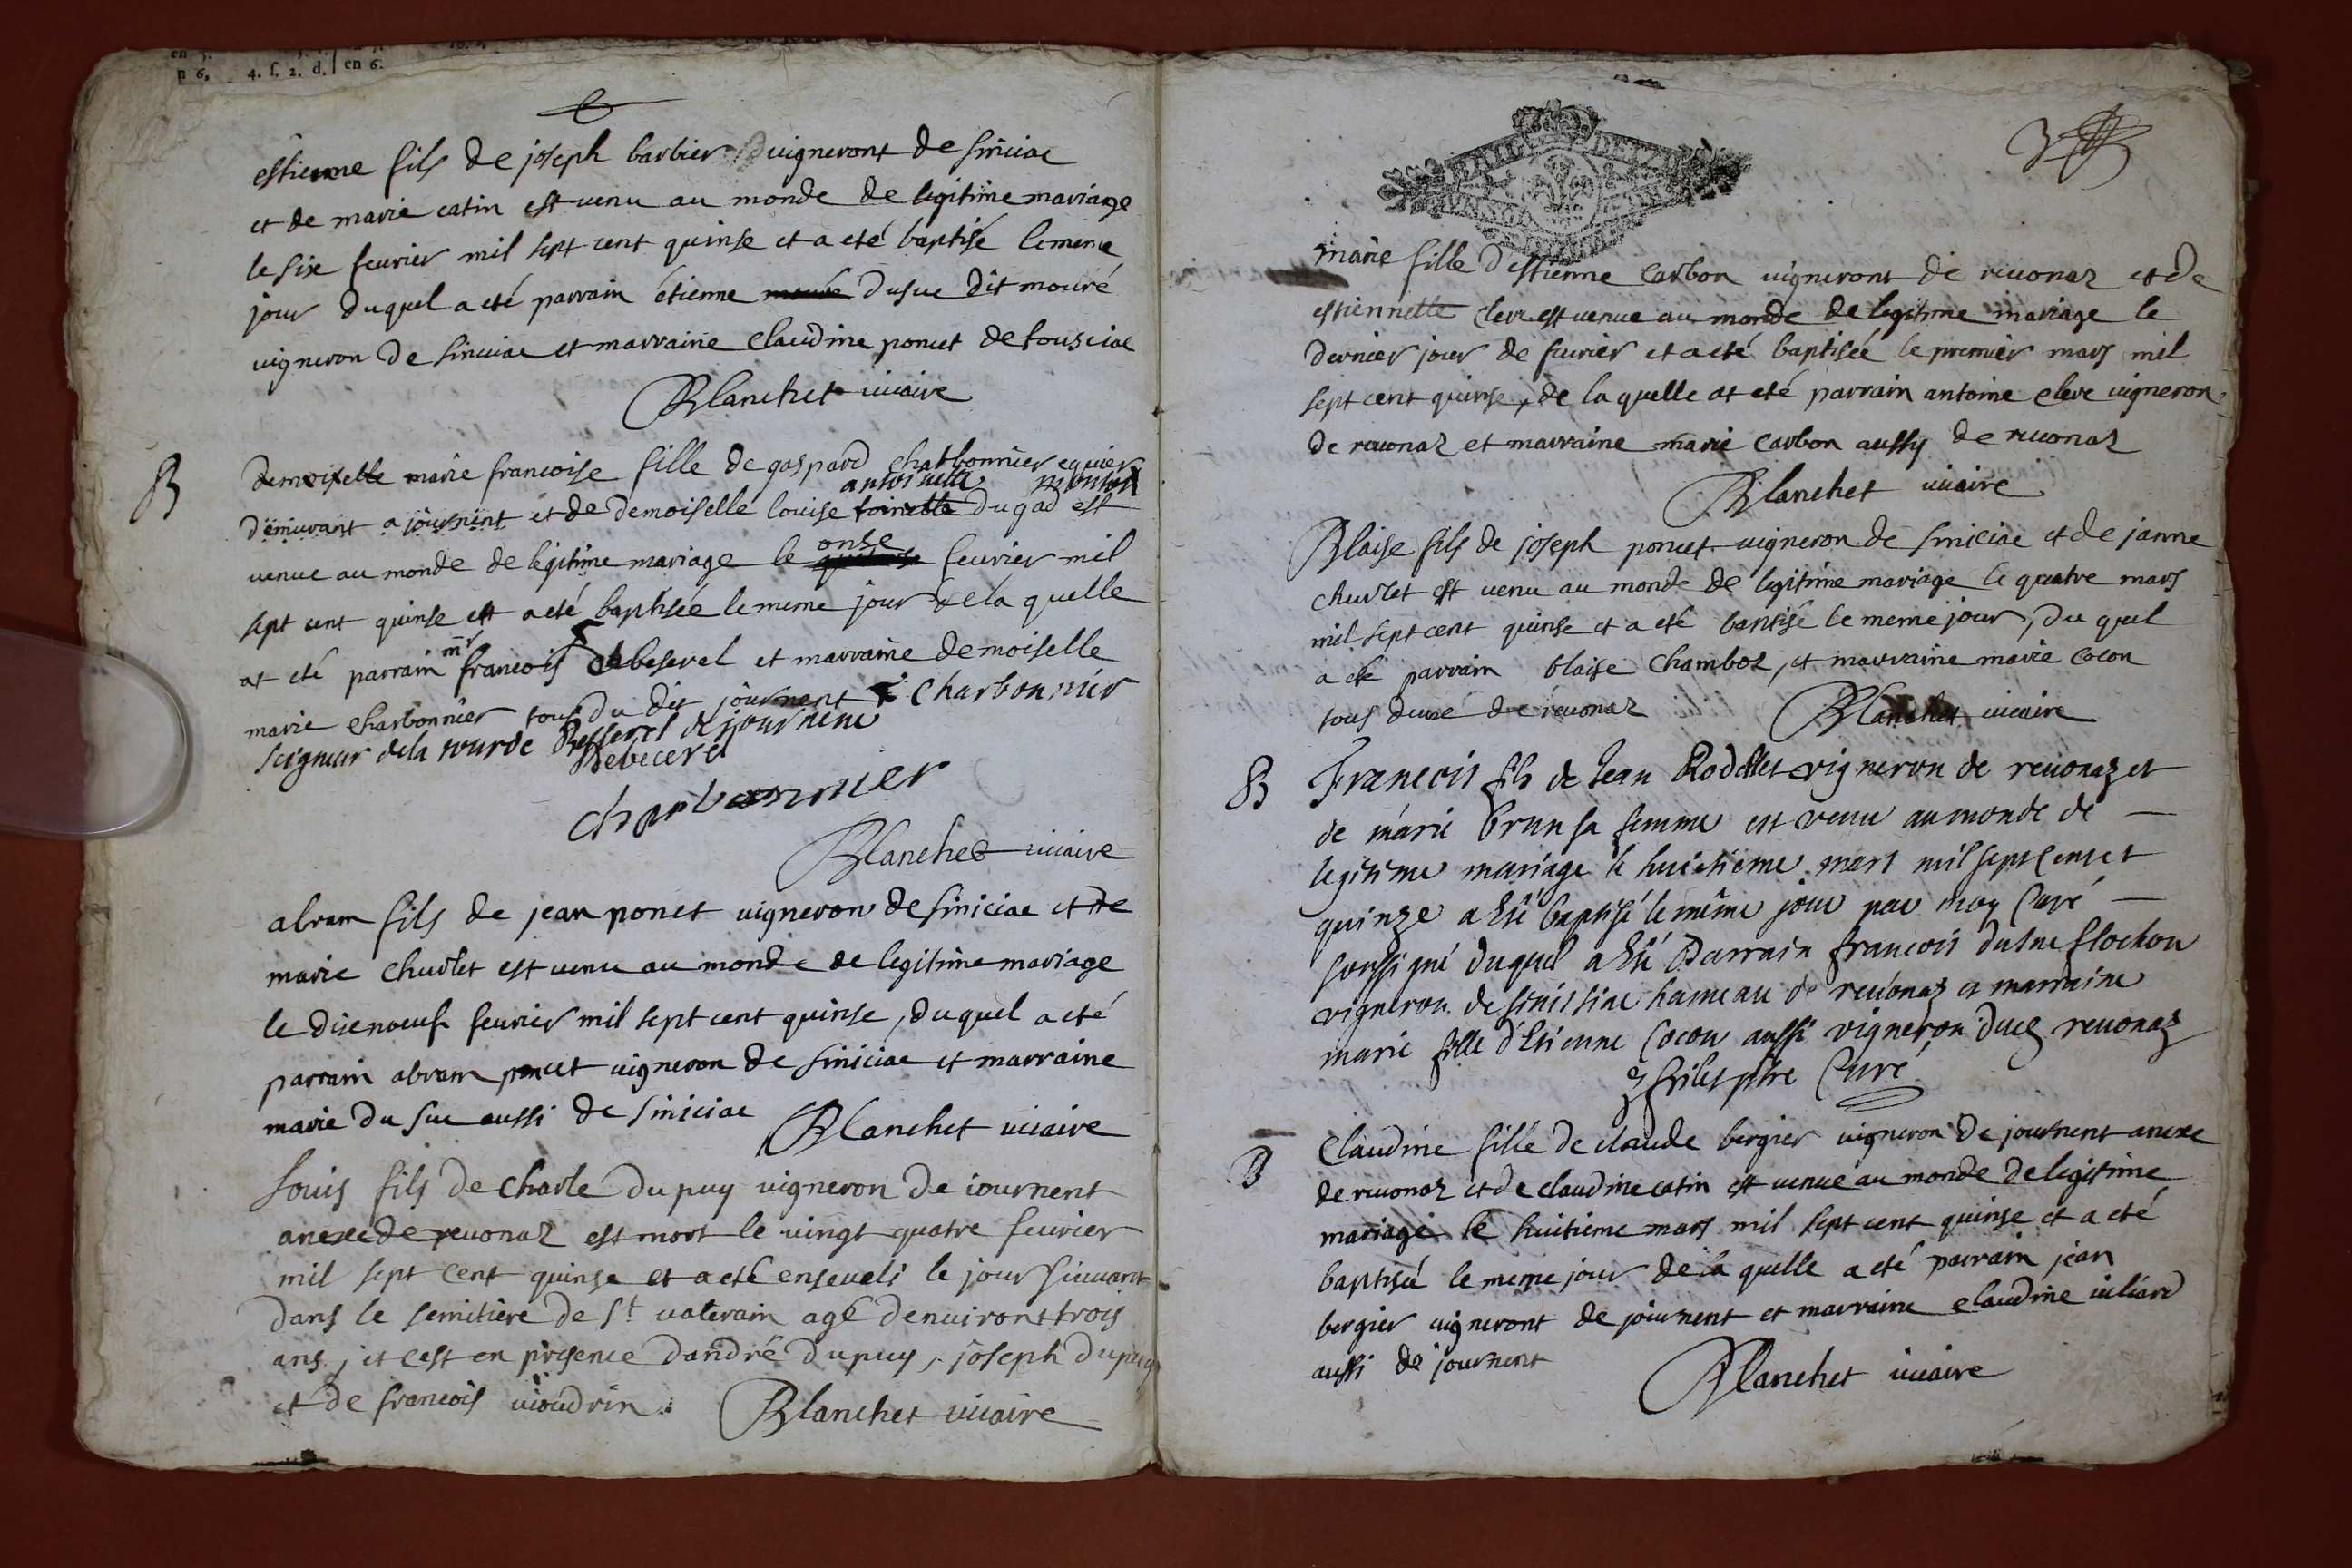 p 6, 4. f. 2. d. en 6.
estienne fils de joseph barbier vigneront de siniciac
et de marie catin est venu au monde de legitime mariage
le six feurier mil sept cent quinse et a eté baptisé le meme
jour duquel a eté parrain étienne dusuc dit mouré
vigneron de siniciac et marraine claudine poncet de tousciac
Blanchet vicaire
B
demoiselle marie francoise fille de gaspard charbonnier equier
antoinette
demeurant a journent et de demoiselle louise toinette dugad est
onse
venue au monde de legitime mariage le feurier mil
sept cent quinse est a eté baptisée le meme jour de la quelle
at eté parrain mr francois debeserel et marraine demoiselle
marie charbonnier tous du dit journent charbonnier
seigneur de la tourde Besserel de journent
Debecerel
charbonnier
Blanchet vicaire
abram fils de jean poncet vigneron de siniciac et de
marie churlet est venu au monde de legitime mariage
le disenoeuf feurier mil sept cent quinse, duquel a eté
parrain abram poncet vigneron de siniciac et marraine
marie du suc aussi de siniciac Blanchet vicaire
louis fils de charle dupuy vigneron de iournent
anexe de reuonaz est mort le vingt quatre feurier
mil sept cent quinse et a eté enseueli le jour siuuant
dans le semitière de st valerain agé denuiront trois
ans, et cest en presence dandré dupuy, joseph dupuy
et de francois vioudrin. Blanchet vicaire
3
marie fille d'estienne carbon vigneront de reuonaz et de
estiennette clere est venue au monde de legitime mariage le
dernier jour de feurier et a eté baptisée le premier mars mil
sept cent quinse, de la quelle at eté parrain antoine clere vigneron
de reuonaz et marraine marie carbon aussy de reuonaz
Blanchet vicaire
Blaise fils de joseph poncet vigneron de siniciac et de janne
churlet est venu au monde de legitime mariage le quatre mars
mil sept cent quinse et a eté baptisé le meme jour, du quel
a eté parrain blaise chamboz, et marraine marie cocon
tous deux de reuonaz Blanchet vicaire
B
Francois fils de Jean Rodet vigneron de reuonaz et
de marie brun sa femme est venu au monde de
legitime mariage le huictieme mars mil sept cent et
quinze a esté baptisé le même jour par moy Curé
soussigné duquel a esté Parrain francois dusuc flochon
vigneron de sinissiac hameau de reuónaz et marraine
marie fille d'Etienne Cocon aussi vigneron dud reuonaz
Curé
B
Claudine fille de claude bergier vigneron de journent anexe
de reuonaz et de claudine catin est venue au monde de legitime
mariage le huitieme mars mil sept cent quinse et a eté
baptiseé le meme jour de la quelle a eté parrain jean
bergier vigneront de journent et marraine claudine iuliard
aussi de journent Blanchet vicaire